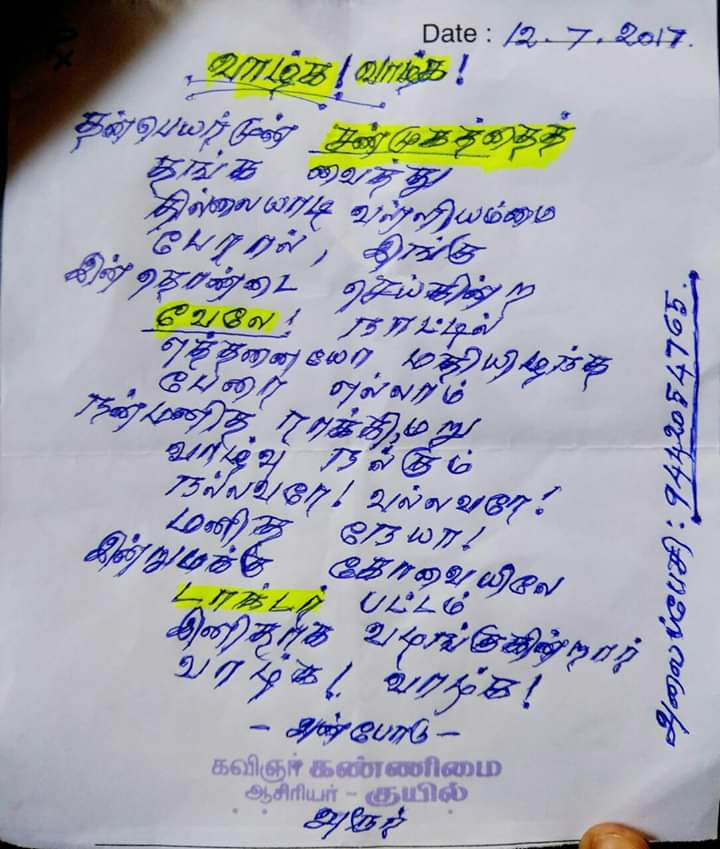 Date : 12.7.2017.
வாழ்க! வாழ்க!
தன்பெயர்முன் சண்முகத்தைத்
தாங்க வைத்து
தில்லையாடி வள்ளியம்மை
போரால், இங்கு
இன்தொண்டை செய்கின்ற
வேலே! நாட்டில்
எத்தனையோ மதியிழந்த
பேரை எல்லாம்
நன்மனித ராக்கி,மறு
வாழ்வு நல்கும்
நல்லவரே! வல்லவரே!
மனித நேயா!
இன்றுமக்கு கோவையிலே
டாக்டர் பட்டம்
இனிதாக வழங்குகின்றார்
வாழ்க! வாழ்க!
- அன்போடு -
கவிஞர் கண்ணிமை
ஆசிரியர் - குயில்